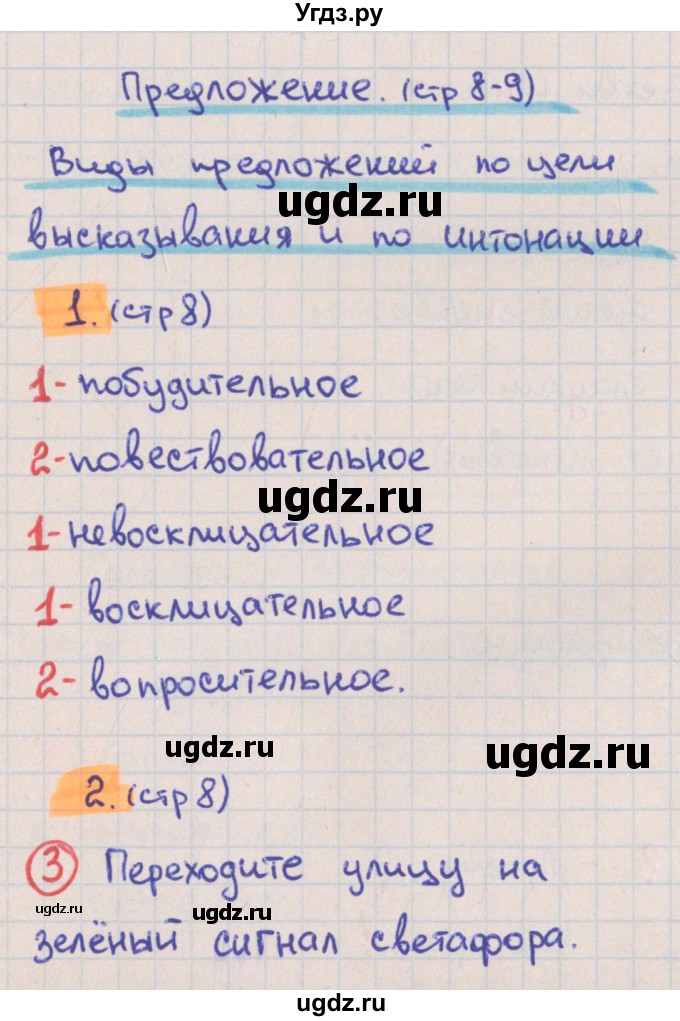 Угдз.ру
Предложение. (стр 8-9)
Виды предложений по цели
ugdz.ru
высказывания и по интонации
1. (стр 8)
1- побудительное
2- повествовательное
ugdz.ru
1- невосклицательное
1- восклицательное
2- вопросительное.
ugdz.ru
ugdz.ru
2. (стр 8)
3 Переходите улицу на
ugdz.ru
ugdz.ru
зелёный сигнал светафора.
ugdz.ru
ugdz.ru